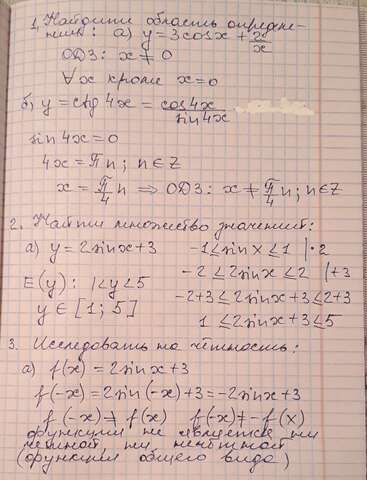 1. Найдите область определе-
ния: а) y = 3cosx + 2/x
ОДЗ: x ≠ 0
∀x кроме x=0
б) y = ctg 4x = cos4x/sin4x
sin 4x = 0
4x = πn; n∈Z
x = π/4 n ⇒ ОДЗ: x ≠ π/4 n; n∈Z
2. Найти множество значений:
а) y = 2sinx+3 -1≤sinx≤1 |·2
-2≤2sinx≤2 |+3
E(y): 1<y≤5 -2+3≤2sinx+3≤2+3
y∈[1;5] 1≤2sinx+3≤5
3. Исследовать на чётность:
а) f(x) = 2sinx+3
f(-x) = 2sin(-x)+3 = -2sinx+3
f(-x) ≠ f(x) f(-x) ≠ -f(x)
функция не является ни
чётной ни нечётной
(функция общего вида)